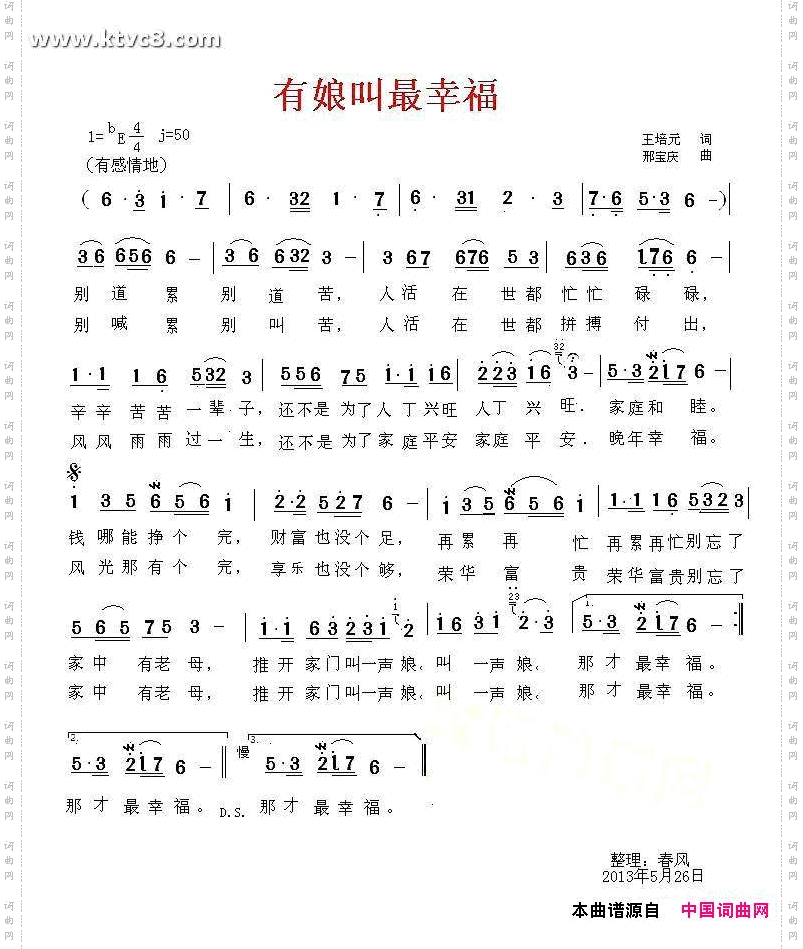 www.ktvc8.com
有娘叫最幸福
1=bE 4/4 j=50
王培元 词
(有感情地)
邢宝庆 曲
(6·3 i·7 | 6·32 1·7 | 6·31 2·3 | 7·6 5·3 6 -)|
36 656 6 - | 36 632 3 - | 3 67 676 53 | 636 i76 6 - |
别 道 累 别 道 苦, 人活 在 世都 忙忙 碌 碌,
别 喊 累 别 叫 苦, 人活 在 世都 拼搏 付 出,
1·1 16 532 3 | 556 75 i·i i6 | 223 i6 3 - | 5·3 2i7 6 - |
辛辛 苦苦 一辈 子, 还不是 为了 人丁 兴旺 人丁 兴 旺. 家庭和 睦。
风风 雨雨 过一 生, 还不是 为了 家庭平安 家庭 平 安. 晚年幸 福。
i 35 6 56 i | 2·2 527 6 - | i 35 6 56 i | i·i i6 5323 |
钱 哪能 挣个 完, 财富也没个 足, 再累 再 忙 再累再忙别忘了
风 光那 有个 完, 享乐也没个 够, 荣华 富 贵 荣华富贵别忘了
5 65 75 3 - | i·i 63 23i 2 | i6 3i 2·3 | 1. 5·3 2i7 6 - :|
家中 有老 母, 推开 家门叫一声娘、叫 一声娘、 那才 最幸福。
家中 有老 母, 推开 家门叫一声娘、叫 一声娘、 那才 最幸福。
2. 5·3 2i7 6 - || 慢 3. 5·3 2i7 6 - ||
那才 最幸福。 D.S. 那才 最幸福。
整理: 春风
2013年5月26日
本曲谱源自 中国词曲网